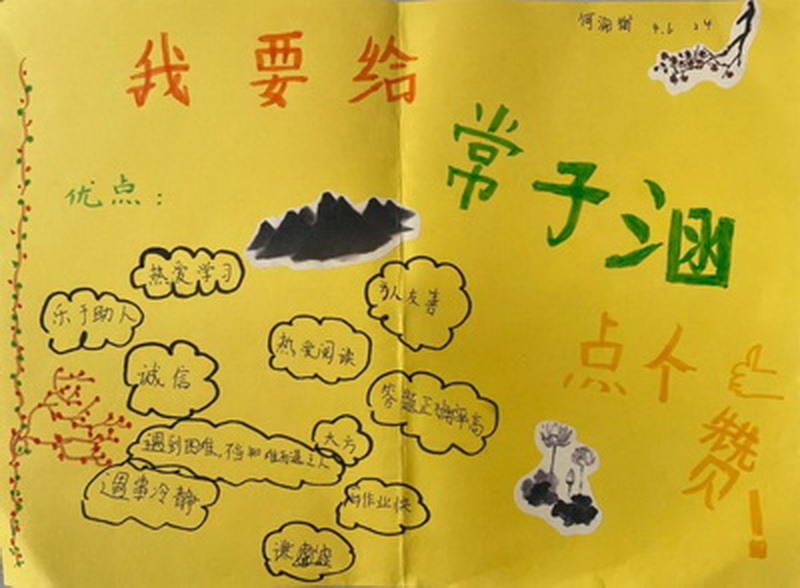 4.6 24
我要给
常子涵
点个
赞！
优点：
热爱学习
乐于助人
诚信
热爱阅读
友善
答题正确率高
大方
遇到困难，不
遇事冷静
作业快
谦虚